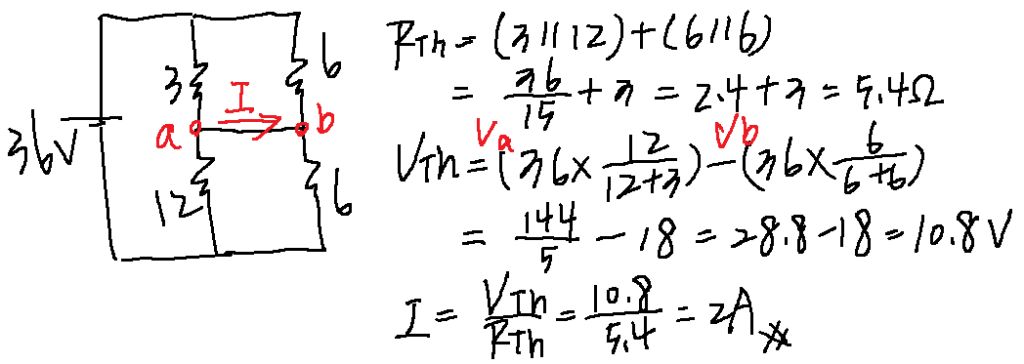 36V
3
6
I
a
b
12
6
RTh = (3||12)+(6||6)
= 36/15 + 3 = 2.4+3 = 5.4Ω
Va Vb
VTh = (36×12/(12+3))-(36×6/(6+6))
= 144/5 - 18 = 28.8-18 = 10.8V
I = VTh/RTh = 10.8/5.4 = 2A